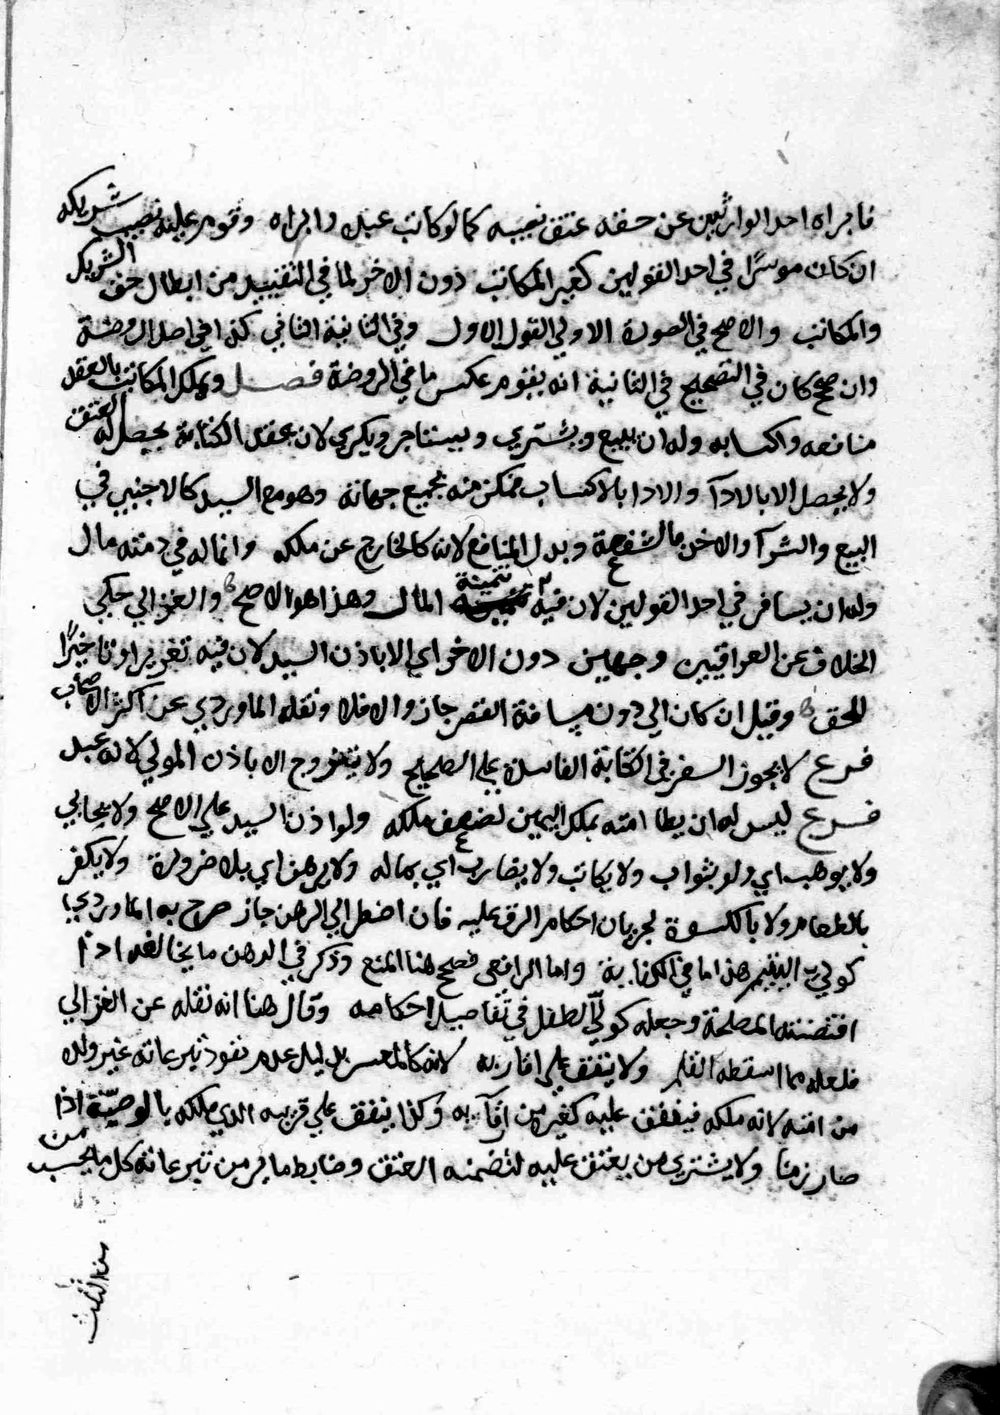 فابراه احد الوارثين عن حقه عتق نصيبه كما لو كاتب عبده وابراه وقوم عليه نصيب شريكه
ان كان موسرًا في احد القولين كغير المكاتب دون الاخر لما في التقييد من ابطال حق الشريك
والمكاتب والاصح في الصورة الاولي القول الاول وفي الثانية الثاني كذا في اصل الروضة
وان صح كان في التصحيح في الثانية انه يقوم عكس ما في الروضة فصل ويملك المكاتب بالعقد
منافعه واكسابه وله ان يبيع ويشتري ويستاجر ويكري لان بعقد الكتابة يحصل له العتق
ولا يحصل الا بالادآ والادا بالاكتساب فمكن منه بجميع جهاته وهو مع السيد كالاجنبي في
البيع والشرآ والاخذ بالشفعة وبدل المنافع لانه كالخارج عن ملكه وانما له في ذمته مال
وله ان يسافر في احد القولين لان فيه تنمية المال وهذا هو الاصح والغزالي حكي
الخلاف عن العراقيين وجهين دون الاخر اي الا باذن السيد لان فيه تغريرا وتاخيرًا
للحق وقيل ان كان الي دون مسافة القصر جاز والا فلا ونقله الماوردي عن اكثر الاصحاب
فرع لا يجوز السفر في الكتابة الفاسدة علي الصحيح ولا يتزوج الا باذن المولي لانه عبد
فرع ليس له ان يطا امته بملك اليمين لضعف ملكه ولو اذن السيد علي الاصح ولا يحابي
ولا يوهب اي ولو بثواب ولا يكاتب ولا يضارب اي بماله ولا يرهن اي بلا ضرورة ولا يكفر
بالطعام ولا بالكسوة لجريان احكام الرق عليه فان اضطر الي الرهن جاز صرح به الماوردي
كولي اليتيم هذا ما في الكفاية واما الرافعي فصحح هنا المنع وذكر في الرهن ما يخالفه اذا
اقتضته المصلحة وجعله كوليّ الطفل في تفاصيل احكامه وقال هنا انه نقله عن الغزالي
فلعله مما اسقطه القلم ولا ينفق علي اقاربه لانه كالمعسر بدليل عدم نفوذ تبرعاته غير ولده
من امته لانه ملكه فينفق عليه كغيره من اقآربه وكذا ينفق علي قريبه الذي ملكه بالوصيّة اذا
صار زمنا ولا يشتري من يعتق عليه لتضمنه العتق وضابط ما مر من تبرعاته كل ما يحسب من
من الثلث